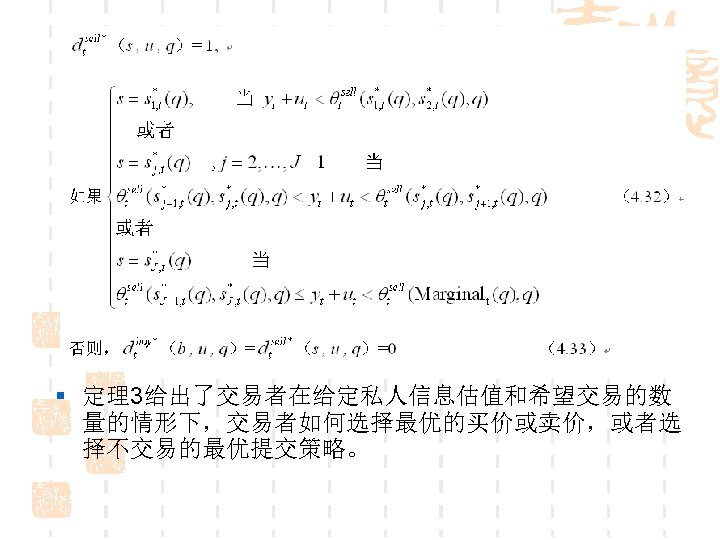 d_t^{sell*}（s , u , q）=1,
s = s^*_{1,t}(q), 当 y_t + u_t < θ_t^{sell}(s^*_{1,t}(q), s^*_{2,t}(q), q)
或者
s = s^*_{j,t}(q) , j = 2,…, J 1 当
如果 θ_t^{sell}(s^*_{j-1,t}(q), s^*_{j,t}(q), q) < y_t + u_t < θ_t^{sell}(s^*_{j,t}(q), s^*_{j+1,t}(q), q) （4.32）
或者
s = s^*_{J,t}(q) 当
θ_t^{sell}(s^*_{J-1,t}(q), s^*_{J,t}(q), q) ≤ y_t + u_t < θ_t^{sell}(Marginal_t(q), q)
否则， d_t^{buy*}（b , u , q）= d_t^{sell*}（s , u , q）=0 （4.33）
▪ 定理3给出了交易者在给定私人信息估值和希望交易的数
量的情形下，交易者如何选择最优的买价或卖价，或者选
择不交易的最优提交策略。